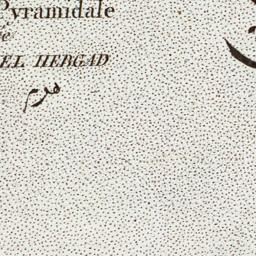 Pyramidale
EL HEBGAD
هرم